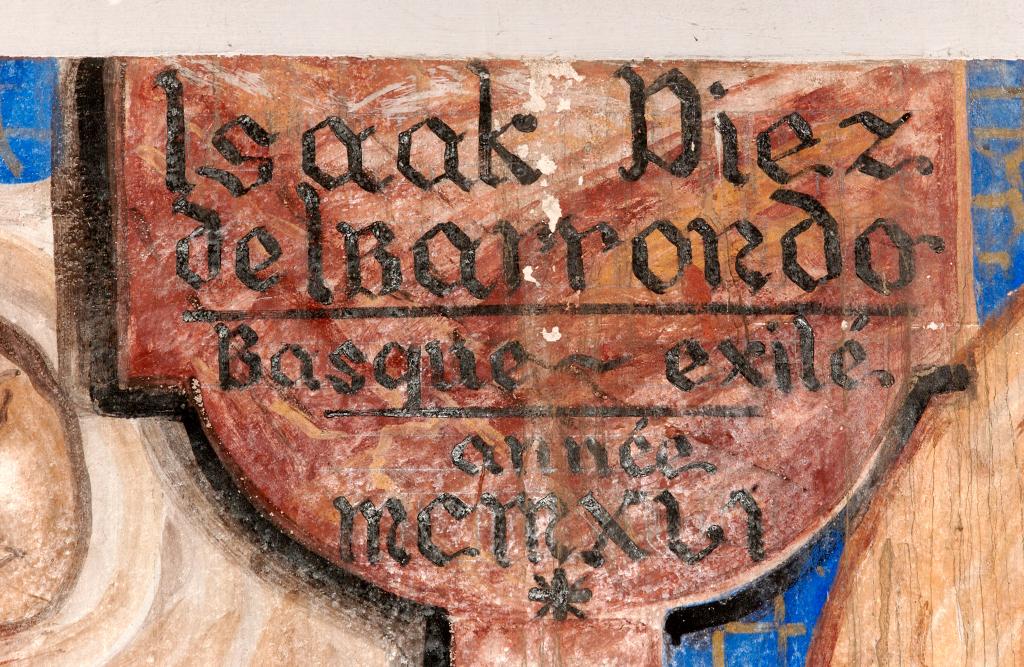 Isaak Diez.
delBarrondo
Basque ~ exilé.
année
MCMXLI
*